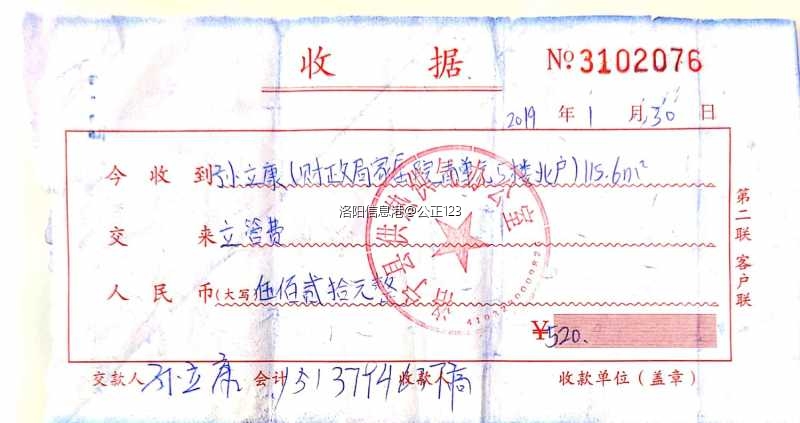 收 据 №3102076
2019 年 1 月 30 日
今 收 到 孙立康(财政局家属院 单元5楼北户)115.6m²
洛阳信息港@公正123
交 来 立管费
人 民 币(大写) 伍佰贰拾元整
¥520.
第二联 客户联
交款人 孙立康 会计 收款人 收款单位(盖章)